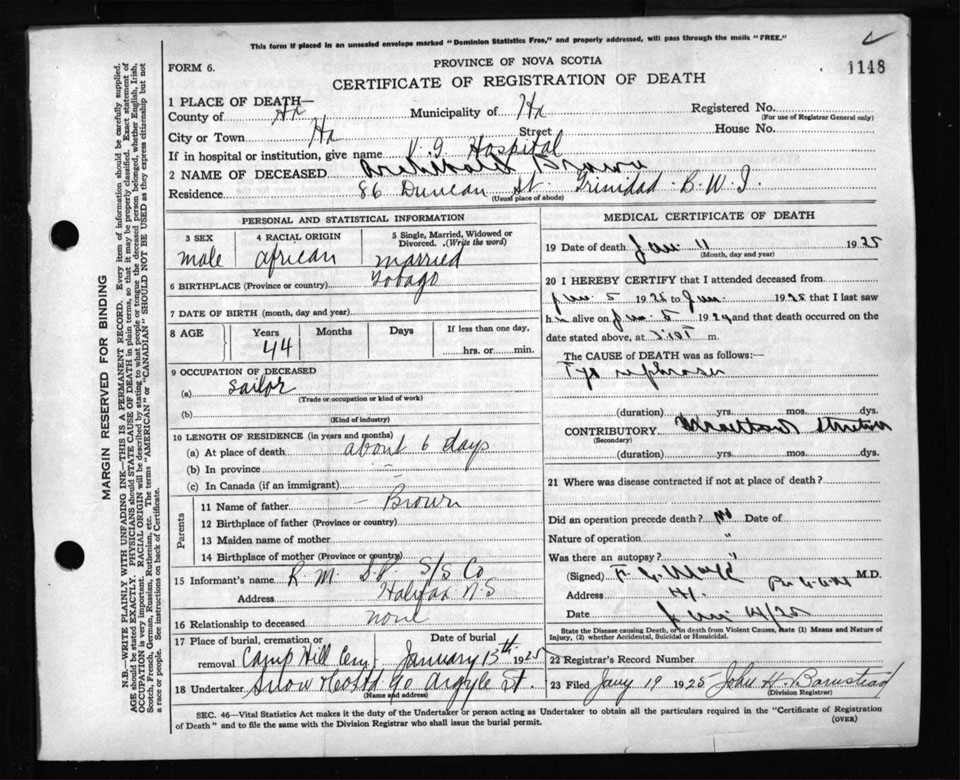 This form if placed in an unsealed envelope marked "Dominion Statistics Free," and properly addressed, will pass through the mails "FREE."
FORM 6.
PROVINCE OF NOVA SCOTIA
1148
CERTIFICATE OF REGISTRATION OF DEATH
1 PLACE OF DEATH—
County of Hx Municipality of Hx Registered No.
(For use of Registrar General only)
City or Town Hx Street House No.
If in hospital or institution, give name V. G. Hospital
2 NAME OF DECEASED Archibald Brown
Residence 86 Duncan St. Trinidad B.W.I.
(Usual place of abode)
PERSONAL AND STATISTICAL INFORMATION
3 SEX male
4 RACIAL ORIGIN african
5 Single, Married, Widowed or Divorced. (Write the word) married
6 BIRTHPLACE (Province or country) Tobago
7 DATE OF BIRTH (month, day and year)
8 AGE Years 44 Months Days If less than one day, hrs. or min.
9 OCCUPATION OF DECEASED
(a) sailor
(Trade or occupation or kind of work)
(b)
(Kind of industry)
10 LENGTH OF RESIDENCE (in years and months)
(a) At place of death about 6 days
(b) In province —
(c) In Canada (if an immigrant)
Parents
11 Name of father — Brown
12 Birthplace of father (Province or country)
13 Maiden name of mother
14 Birthplace of mother (Province or country)
15 Informant's name R. M. S.P. S/S Co
Address Halifax N.S
16 Relationship to deceased none
17 Place of burial, cremation or removal Camp Hill Cem. Date of burial January 13th 1925
18 Undertaker Snow & Co Ltd 90 Argyle St.
(Name and address)
MEDICAL CERTIFICATE OF DEATH
19 Date of death Jan 11 1925
(Month, day and year)
20 I HEREBY CERTIFY that I attended deceased from
Jan. 5 1925 to Jan 1925 that I last saw
him alive on Jan 5 192 and that death occurred on the
date stated above, at m.
The CAUSE OF DEATH was as follows:
Pyo nephrosis
(duration) yrs. mos. dys.
CONTRIBUTORY
(Secondary)
(duration) yrs. mos. dys.
21 Where was disease contracted if not at place of death?
Did an operation precede death? no Date of
Nature of operation "
Was there an autopsy? "
(Signed) M.D.
Address Hx.
Date Jan /25
State the Disease causing Death, or in death from Violent Causes, state (1) Means and Nature of Injury, (2) whether Accidental, Suicidal or Homicidal.
22 Registrar's Record Number
23 Filed Jany 19 1925 John H. Barnstead
(Division Registrar)
SEC. 46—Vital Statistics Act makes it the duty of the Undertaker or person acting as Undertaker to obtain all the particulars required in the "Certificate of Registration
of Death" and to file the same with the Division Registrar who shall issue the burial permit.
(OVER)
MARGIN RESERVED FOR BINDING
N.B.—WRITE PLAINLY WITH UNFADING INK—THIS IS A PERMANENT RECORD. Every item of information should be carefully supplied.
AGE should be stated EXACTLY. PHYSICIANS should STATE CAUSE OF DEATH in plain terms, so that it may be properly classified. Exact statement of
OCCUPATION is very important. RACIAL ORIGIN will be described by stating to what people or tongue the deceased person belonged, whether English, Irish,
Scotch, French, German, Russian, Ruthenian, etc. The terms "AMERICAN" or "CANADIAN" SHOULD NOT BE USED as they express citizenship but not
a race or people. See instructions on back of Certificate.